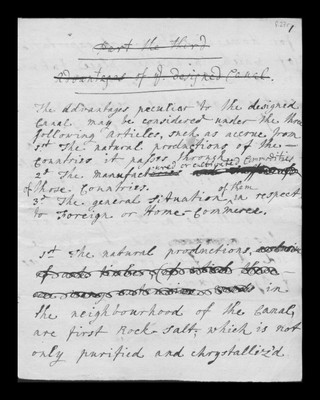 Part the third
Advantages of ye designed Canal.
The Advantages peculiar to the designed
Canal may be considered under the three
following articles, such as accrue from
1st The natural productions of the
Countries it passes through
ured or cultivated Comodities
2d The manufact
of those Countries.
of them
3d The general Situation in respect
to Foreign or Home-Commerce.
1st The natural productions,
in
the neighbourhood of the Canal,
are first Rock-Salt, which is not
only purified and chrystalliz'd